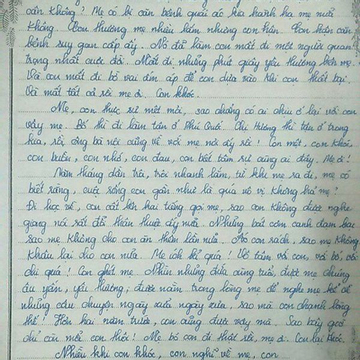 căn không? Mẹ có bị căn bệnh quái ác kia hành hạ mẹ nữa
không. Con thương mẹ nhiều lắm nhưng con hận. Con hận căn
bệnh suy gan cấp ấy. Nó đã làm con mất đi một người quan
trọng nhất cuộc đời. Mất đi những phút giây yêu thương bên mẹ.
Và con mất đi bờ vai êm ấp để con dựa vào khi con thất bại.
Và mất tất cả rồi mẹ ơi. Con khóc.
Mẹ, con thức sự mệt mỏi, sao chẳng có ai chịu ở lại với con
vậy mẹ. Bố thì đi làm tận ở Phú Quốc. Chị Hồng thì tận ở trong
kia, rồi, ông bà nội cũng về với mẹ nơi ấy rồi! Con mệt, con khóc,
con buồn, con nhớ, con đau, con biết tâm sự cùng ai đây. Mẹ ơi!
Năm tháng dần trôi, trôi nhanh lắm, từ khi mẹ ra đi, mẹ có
biết rằng, cuộc sống con gần như là quá vô vị không hả mẹ!
Đi học về, con cất lên hai tiếng gọi mẹ, sao con không được nghe
giọng nói rất đỗi thân thuộc ấy nữa. Những bát cơm canh đạm bạc
sao mẹ không cho con ăn thêm lần nữa. Áo con rách, sao mẹ không
khâu lại cho con nữa. Mẹ ác quá! Bỏ rơi và con, và bố,
quá! Con ghét mẹ. Nhìn những đứa cùng trứa, được mẹ chúng
âu yếm, yêu thương, được nằm trong lòng mẹ để nghe mẹ kể về
những câu chuyện ngày xửa ngày xưa, sao mà con chạnh lòng
thế! Hơn hai năm trước, con cũng được vậy mà. Sao bây giờ
chỉ còn mỗi con khóc! Mẹ bỏ con đi thật rồi, mẹ ơi. Con lại khóc.
Nhiều khi con khóc, con nghĩ về mẹ, con